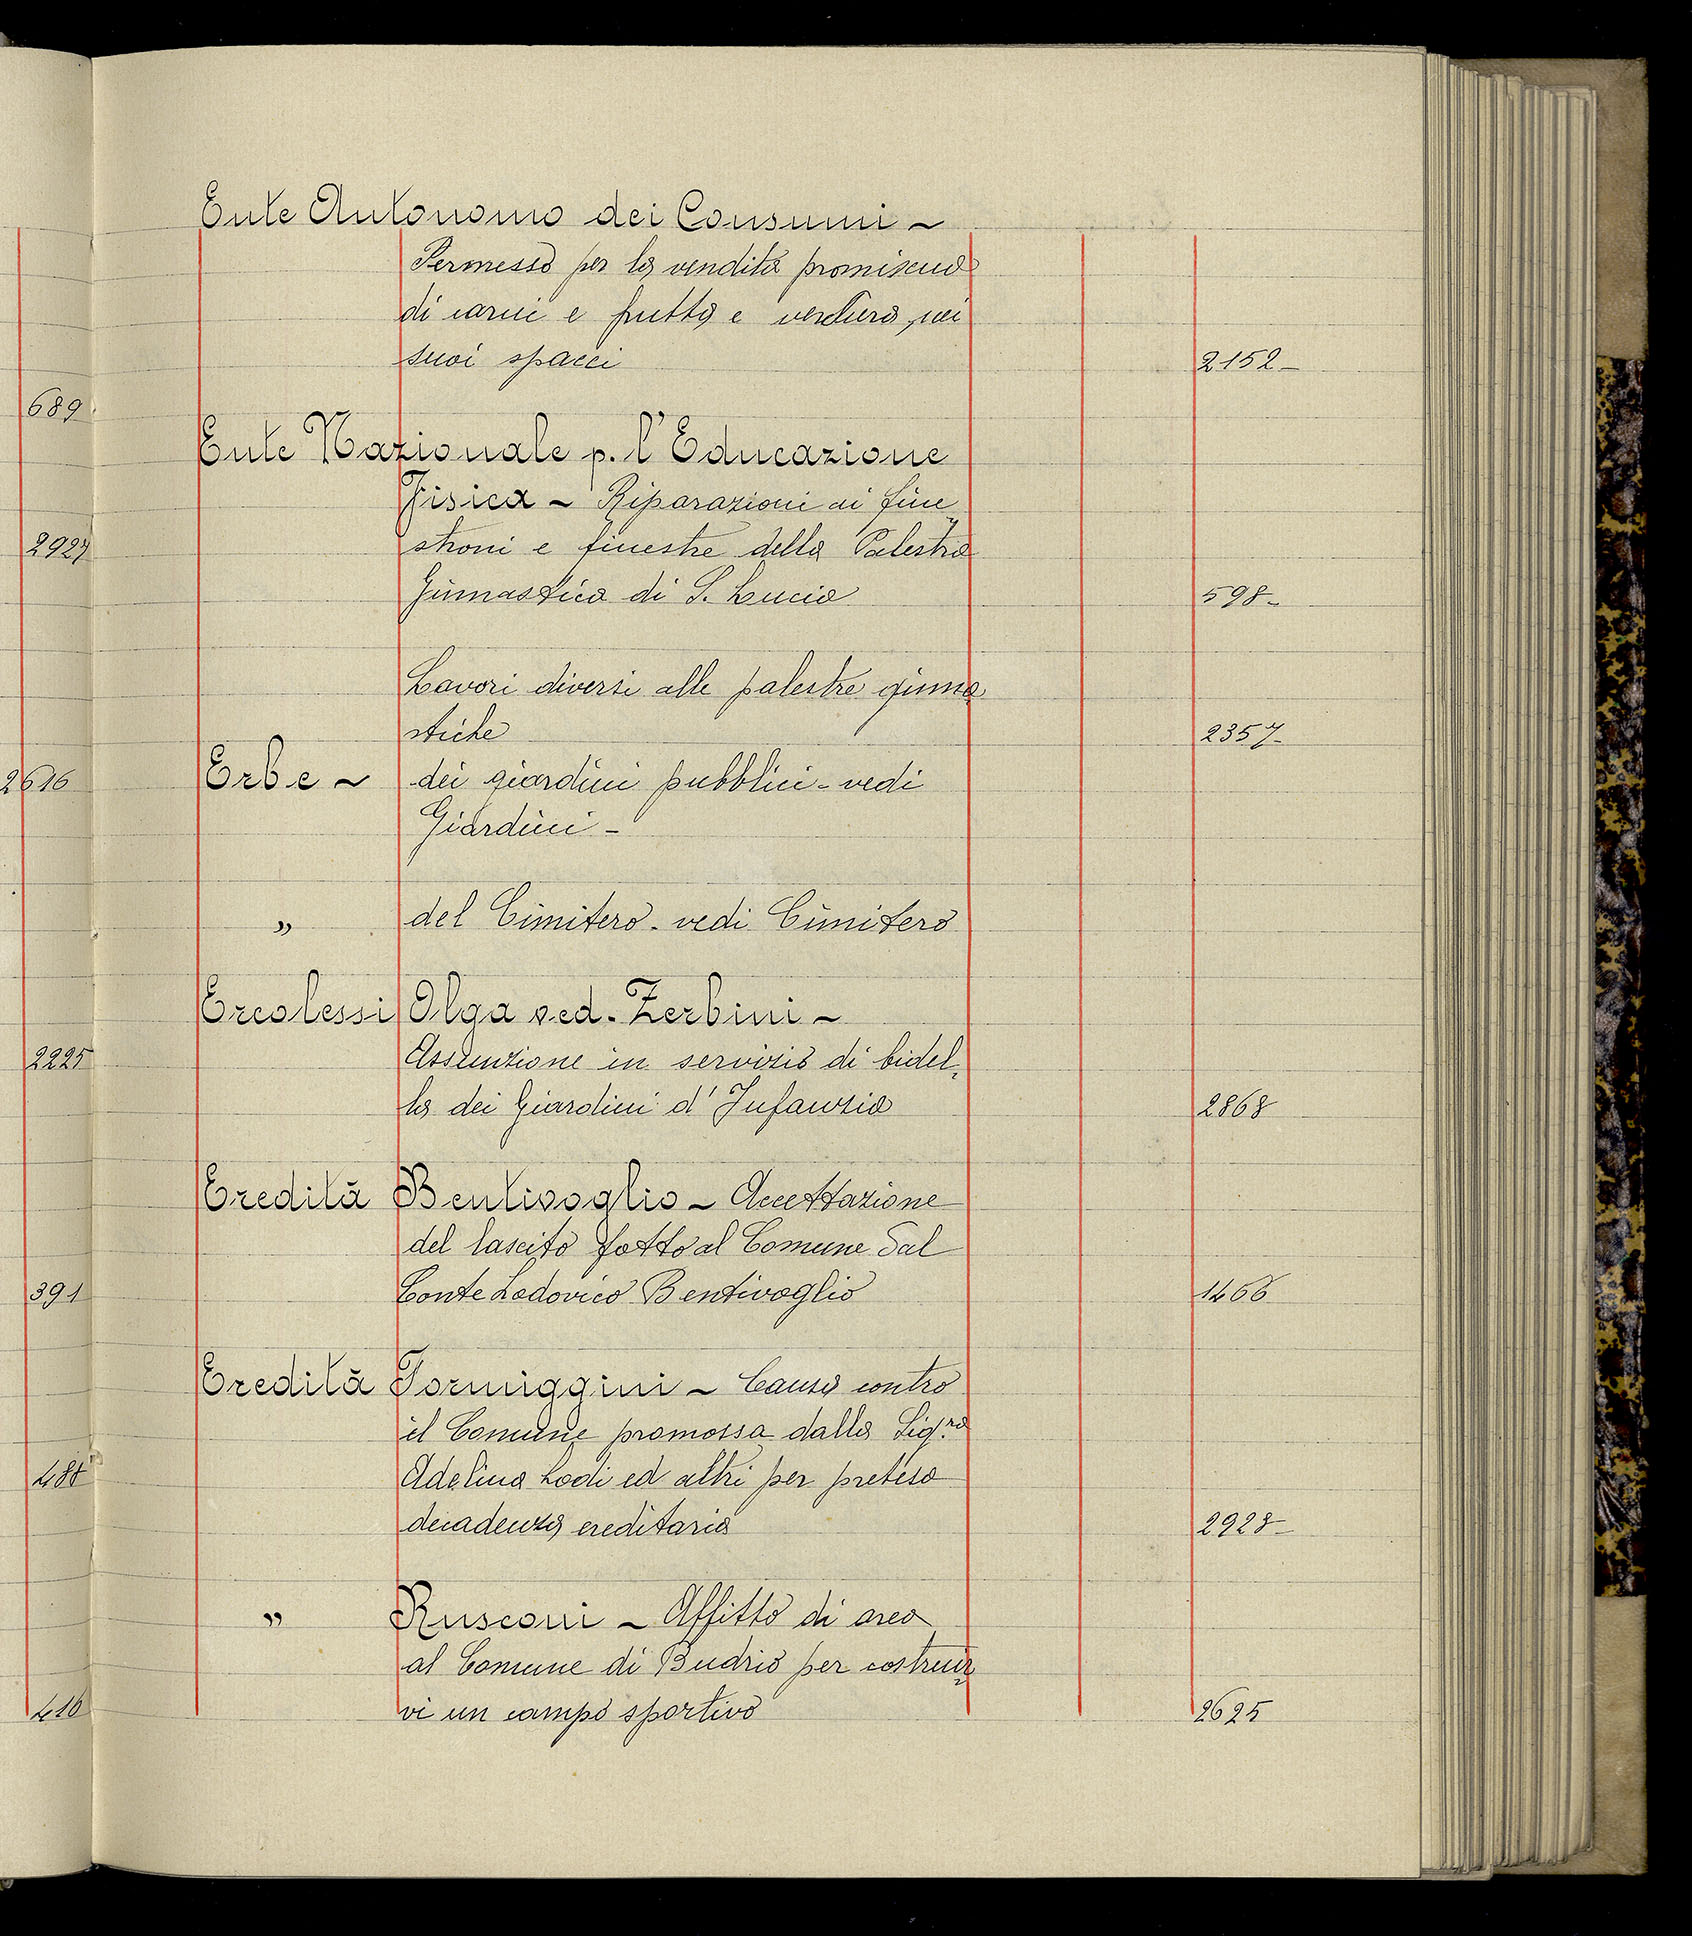 Ente Autonomo dei Consumi -
Permesso per la vendita promiscua
di carni e frutta e verdura nei
suoi spacci 2152 -
689
Ente Nazionale p. l'Educazione
Fisica - Riparazioni ai fine„
2927 stroni e finestre della Palestra
Ginnastica di S. Lucia 598 -
Lavori diversi alle palestre ginna
stiche 2357 -
2616 Erbe - dei giardini pubblici - vedi
Giardini -
„ del Cimitero - vedi Cimitero
Ercolessi Olga ved. Zerbini -
2225 Assunzione in servizio di bidel„
la dei Giardini d'Infanzia 2868
Eredità Bentivoglio - Accettazione
del lascito fatto al Comune dal
391 Conte Lodovico Bentivoglio 1466
Eredità Formiggini - Causa contro
il Comune promossa dalla Sig.ra
488 Adelina Lodi ed altri per pretesa
decadenza ereditaria 2928 -
„ Rusconi - Affitto di area
al Comune di Budrio per costruir„
416 vi un campo sportivo 2625